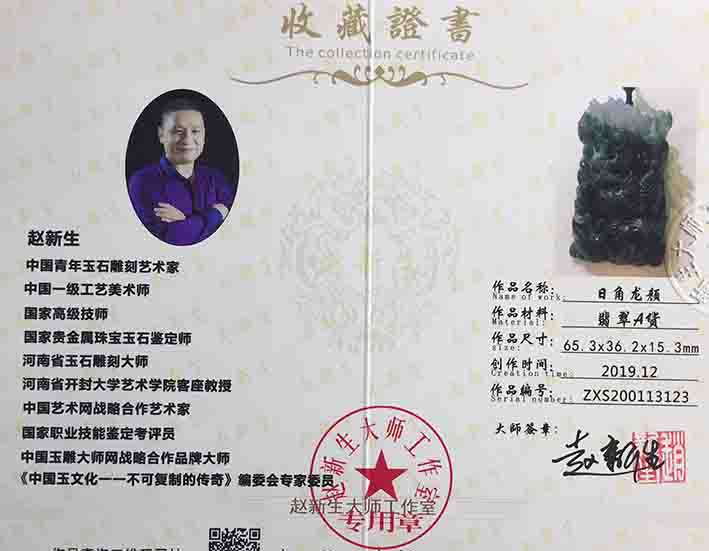 收藏證書
The collection certificate
赵新生
中国青年玉石雕刻艺术家
中国一级工艺美术师
国家高级技师
国家贵金属珠宝玉石鉴定师
河南省玉石雕刻大师
河南省开封大学艺术学院客座教授
中国艺术网战略合作艺术家
国家职业技能鉴定考评员
中国玉雕大师网战略合作品牌大师
《中国玉文化一一不可复制的传奇》编委会专家委员
作品名称： 日角龙颜
Name of work:
作品材料： 翡翠A货
Material:
作品尺寸： 65.3x36.2x15.3mm
size:
创作时间： 2019.12
Creation time:
作品编号： ZXS200113123
Serial number:
大师签章： 赵新生
赵新生大师工作室
专用章
赵新生大师工作室